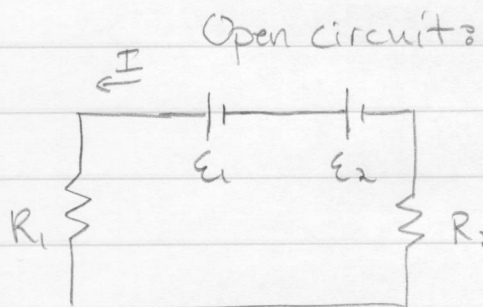 Open circuit:
I
ε₁ ε₂
R₁ R₂